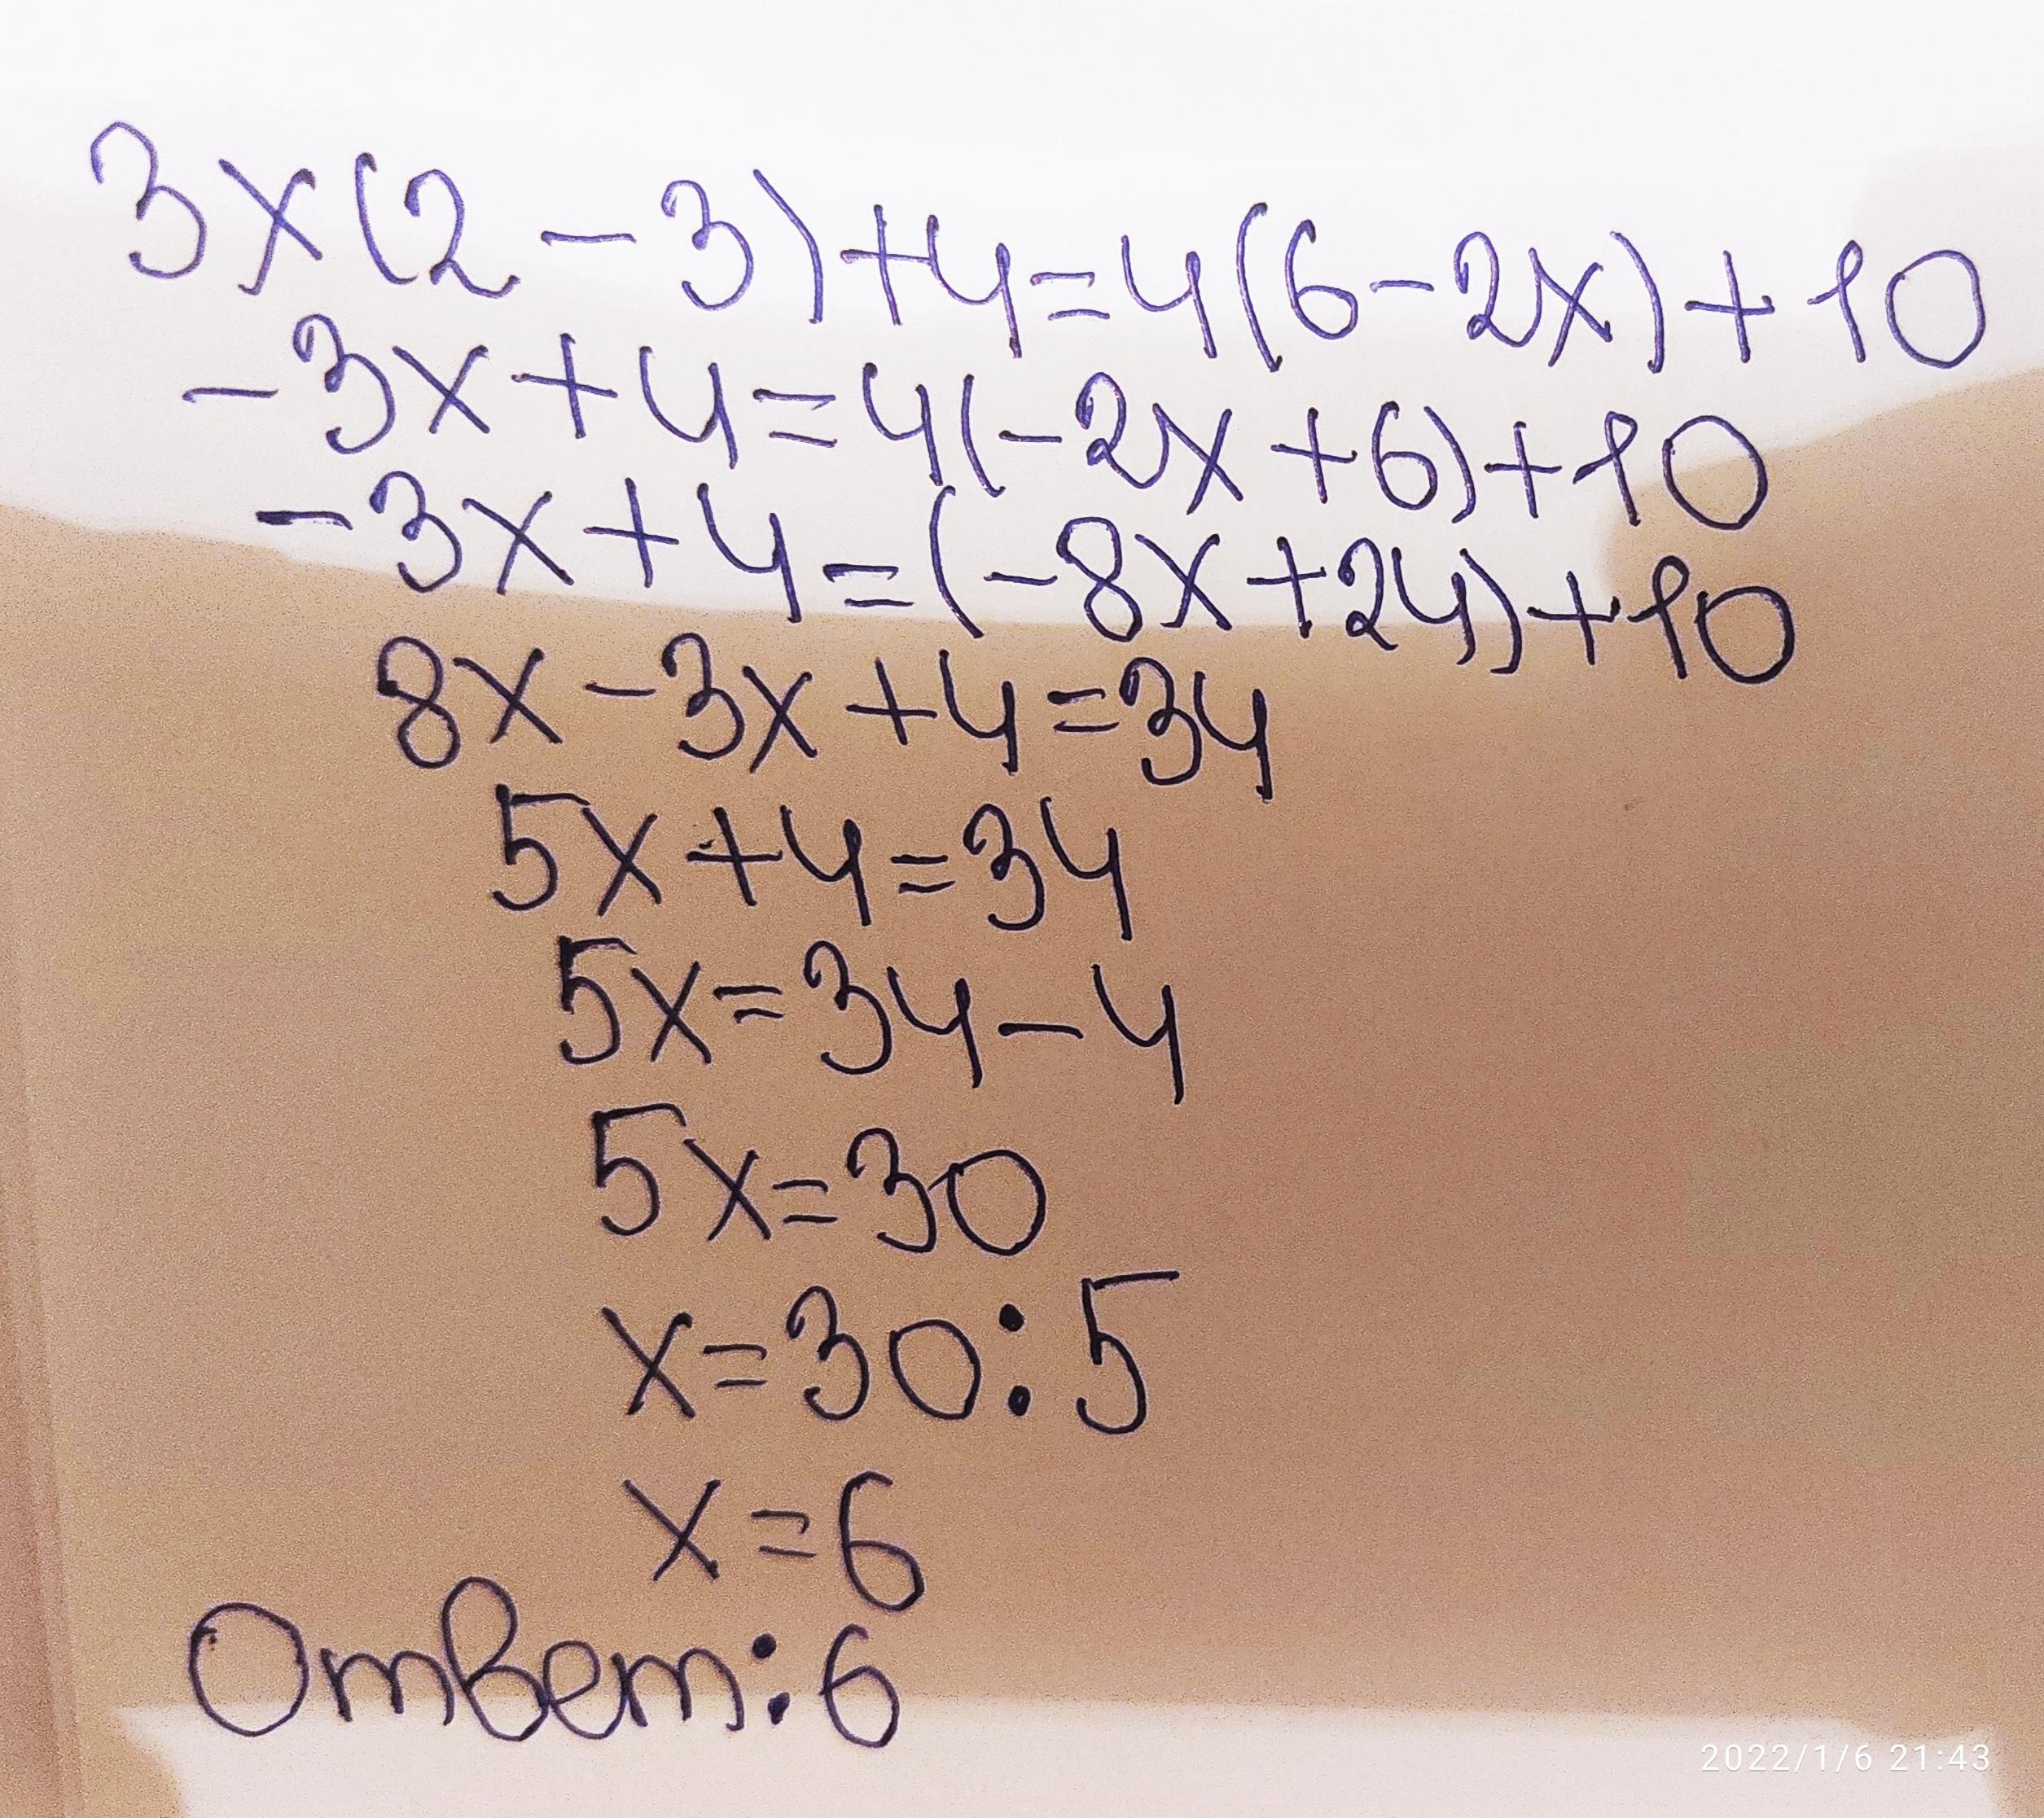 3x(2-3)+4=4(6-2x)+10
-3x+4=4(-2x+6)+10
-3x+4=(-8x+24)+10
8x-3x+4=34
5x+4=34
5x=34-4
5x=30
x=30:5
x=6
Ответ:6
2022/1/6 21:43